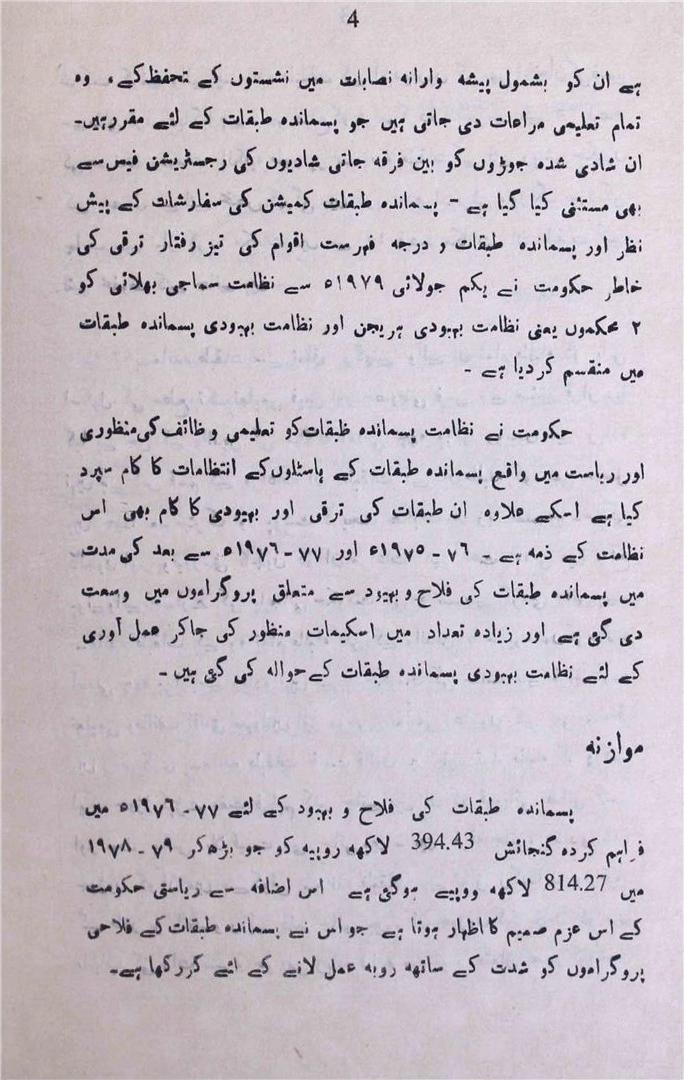 4
ہے ان کو بشمول پیشہ وارانہ نصابات میں نشستوں کے تحفظ کے، وہ
تمام تعلیمی مراعات دی جاتی ہیں جو پسماندہ طبقات کے لئے مقرر ہیں۔
ان شادی شدہ جوڑوں کو بین فرقہ جاتی شادیوں کی رجسٹریشن فیس سے
بھی مستثنی کیا گیا ہے - پسماندہ طبقات کمیشن کی سفارشات کے پیش
نظر اور پسماندہ طبقات و درجہ فہرست اقوام کی تیز رفتار ترقی کی
خاطر حکومت نے یکم جولائی ۱۹۷۹ء سے نظامت سماجی بھلائی کو
۲ محکموں یعنی نظامت بہبودی ہریجن اور نظامت بہبودی پسماندہ طبقات
میں منقسم کر دیا ہے -
حکومت نے نظامت پسماندہ طبقات کو تعلیمی وظائف کی منظوری
اور ریاست میں واقع پسماندہ طبقات کے ہاسٹلوں کے انتظامات کا کام سپرد
کیا ہے اسکے علاوہ ان طبقات کی ترقی اور بہبودی کا کام بھی اس
نظامت کے ذمہ ہے - ۷۶-۱۹۷۵ء اور ۷۷-۱۹۷۶ء سے بعد کی مدت
میں پسماندہ طبقات کی فلاح و بہبود سے متعلق پروگراموں میں وسعت
دی گئی ہے اور زیادہ تعداد میں اسکیمات منظور کی جاکر عمل آوری
کے لئے نظامت بہبودی پسماندہ طبقات کے حوالہ کی گئی ہیں -
موازنہ
پسماندہ طبقات کی فلاح و بہبود کے لئے ۷۷-۱۹۷۶ء میں
فراہم کردہ گنجائش 394.43 لاکھ روپیہ کو جو بڑھ کر ۷۹-۱۹۷۸
میں 814.27 لاکھ روپیے ہوگئی ہے اس اضافہ سے ریاستی حکومت
کے اس عزم صمیم کا اظہار ہوتا ہے جو اس نے پسماندہ طبقات کے فلاحی
پروگراموں کو شدت کے ساتھ روبہ عمل لانے کے لئے کررکھا ہے۔